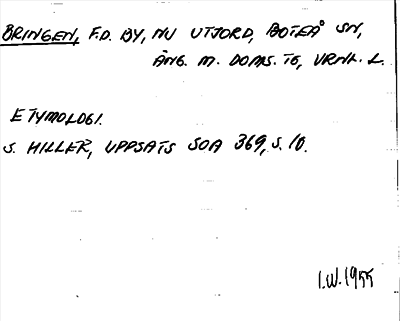 BRINGEN, F.D. BY, NU UTJORD, BOTEÅ SN,
ÅNG. M. DOMS. TG, VRNL. L.
ETYMOLOGI.
S. HILLER, UPPSATS SOA 369, S. 10.
I.W. 1955